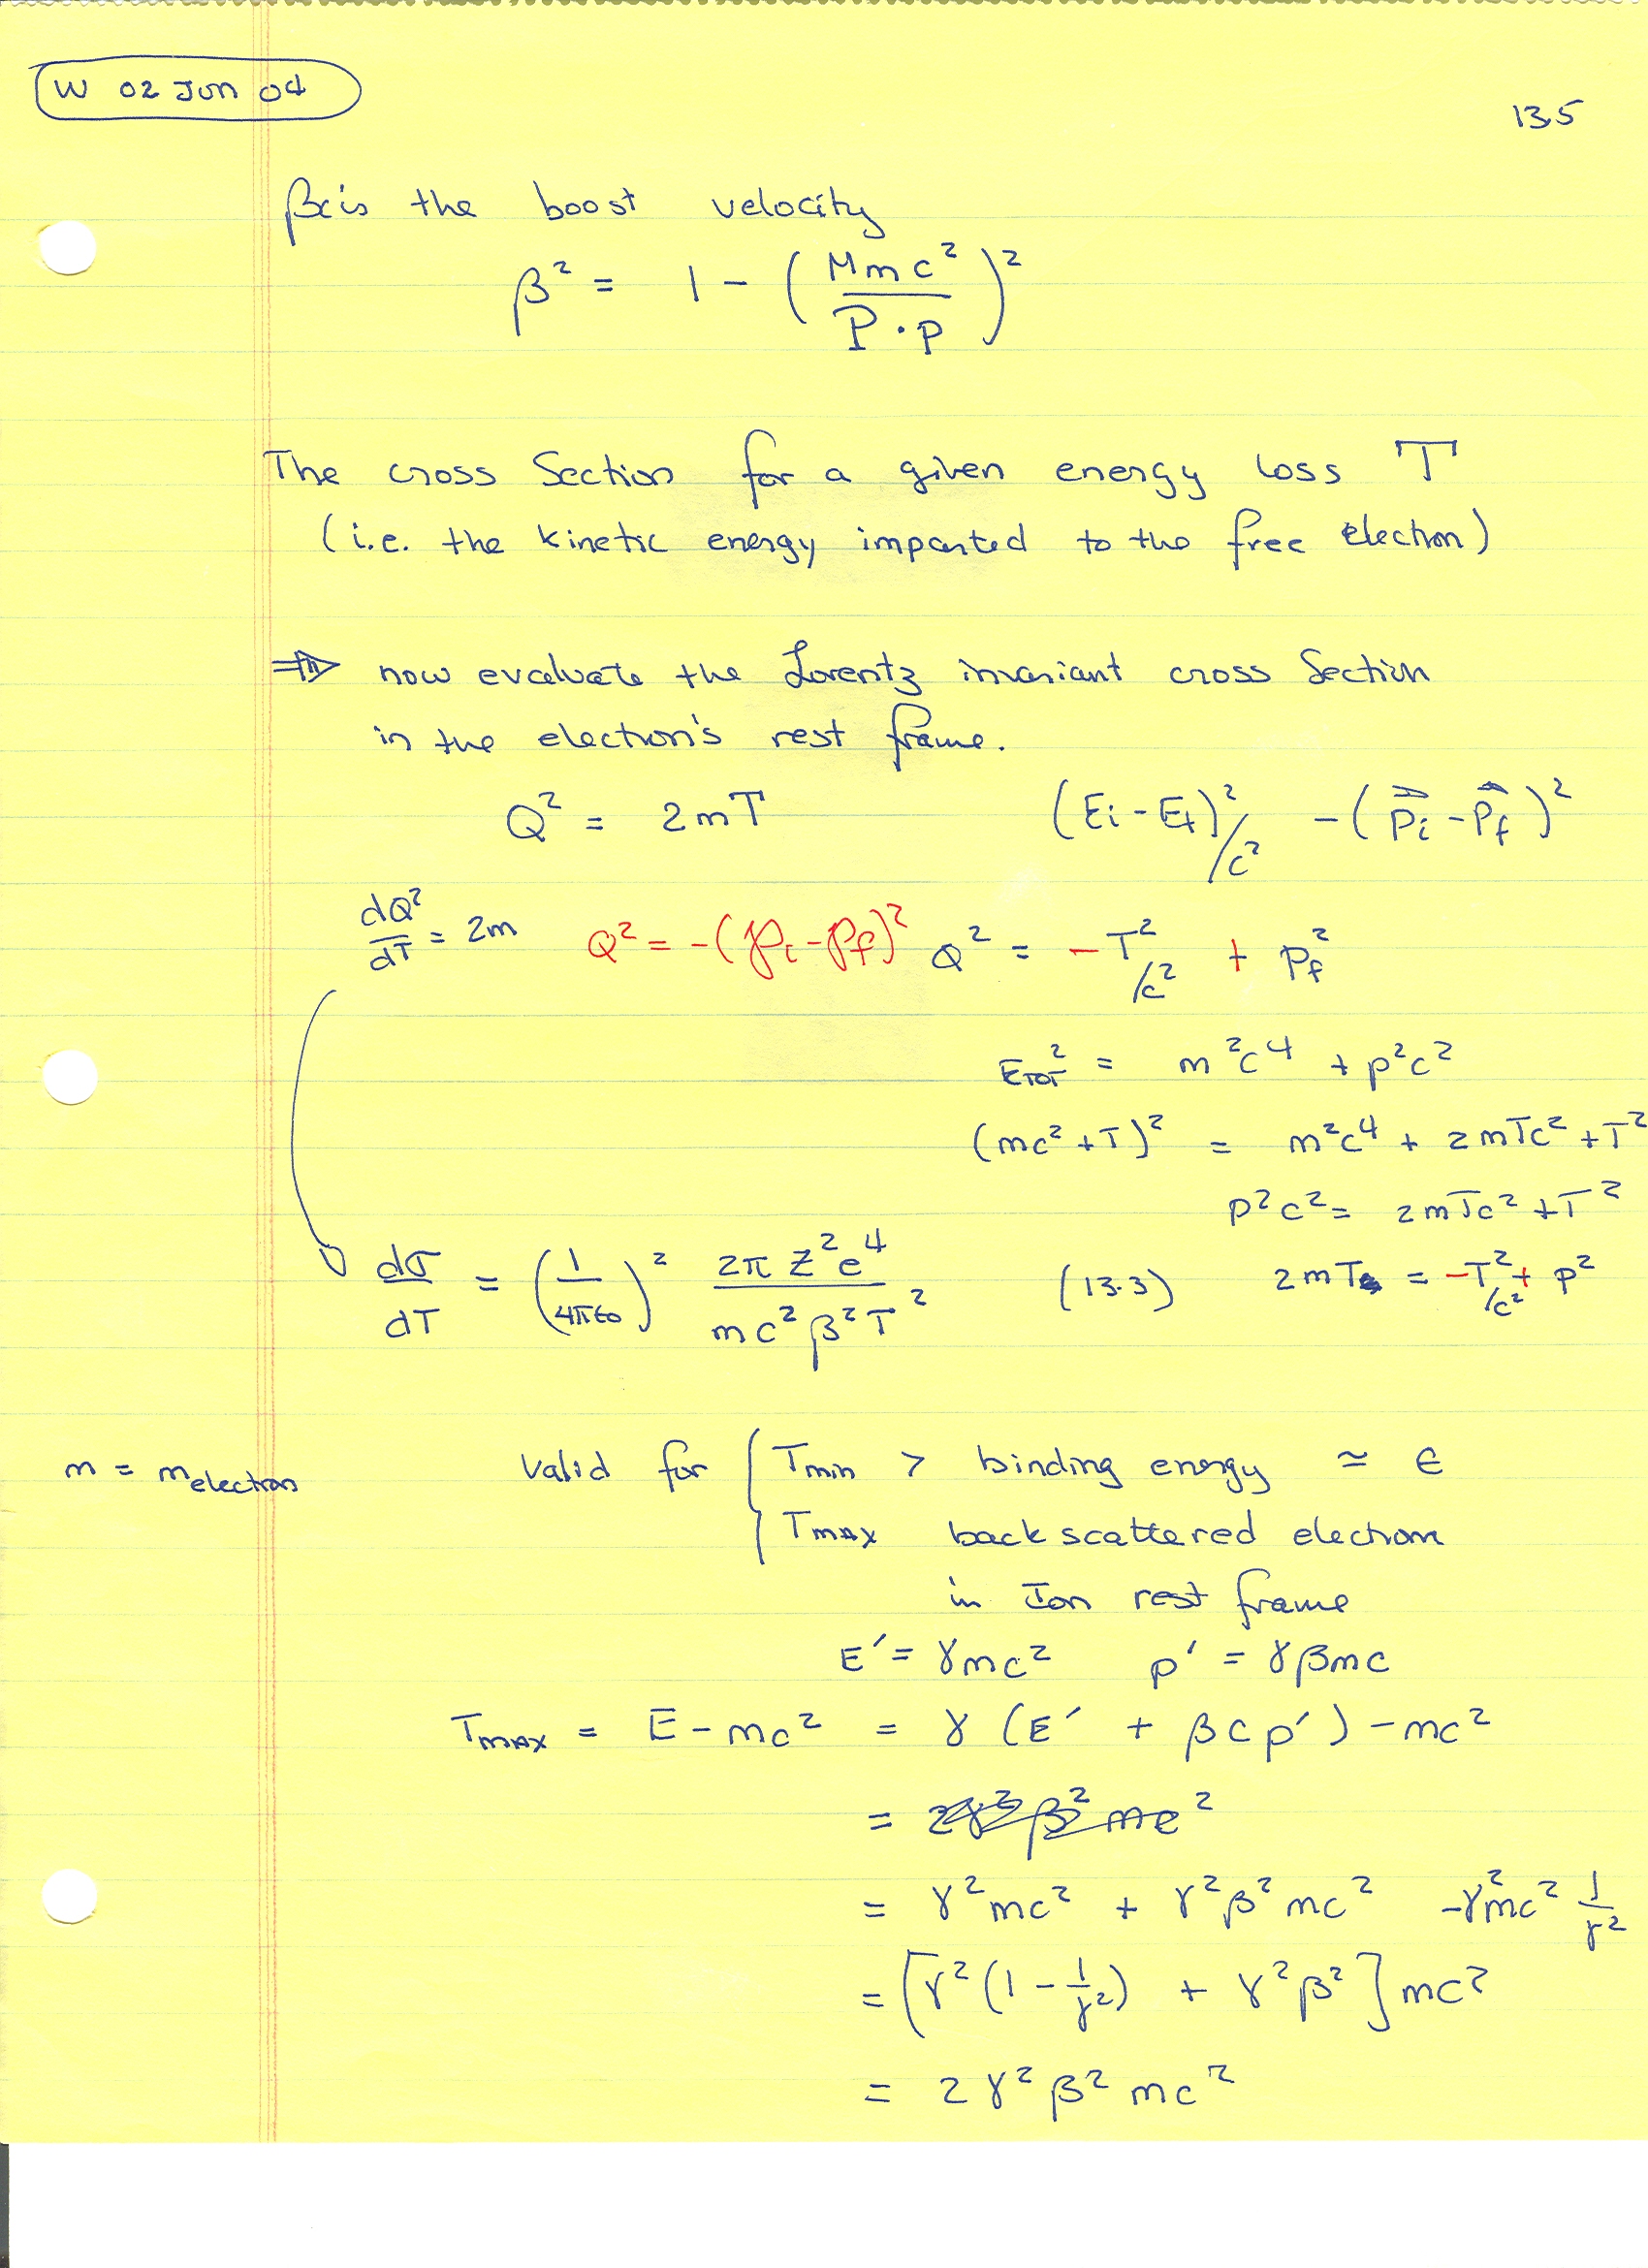 W 02 Jun 04
13.5
βc is the boost velocity
β² = 1 - (Mmc² / P·p)²
The cross Section for a given energy loss T
(i.e. the kinetic energy imparted to the free electron)
⇒ now evaluate the Lorentz invariant cross Section
in the electron's rest frame.
Q² = 2mT (Ei - Ef)²/c² - (p⃗i - p⃗f)²
dQ²/dT = 2m Q² = -(pi - pf)² Q² = -T²/c² + pf²
ETOT² = m²c⁴ + p²c²
(mc² + T)² = m²c⁴ + 2mTc² + T²
p²c² = 2mTc² + T²
dσ/dT = (1/4πε0)² 2πZ²e⁴ / mc²β²T² (13.3) 2mT = -T²/c² + p²
m = melectron valid for { Tmin > binding energy ≃ ε
Tmax backscattered electron
in Ion rest frame
E' = γmc² p' = γβmc
Tmax = E - mc² = γ(E' + βcp') - mc²
= 2γ²β²mc²
= γ²mc² + γ²β²mc² - γ²mc² 1/γ²
= [γ²(1 - 1/γ²) + γ²β²]mc²
= 2γ²β²mc²